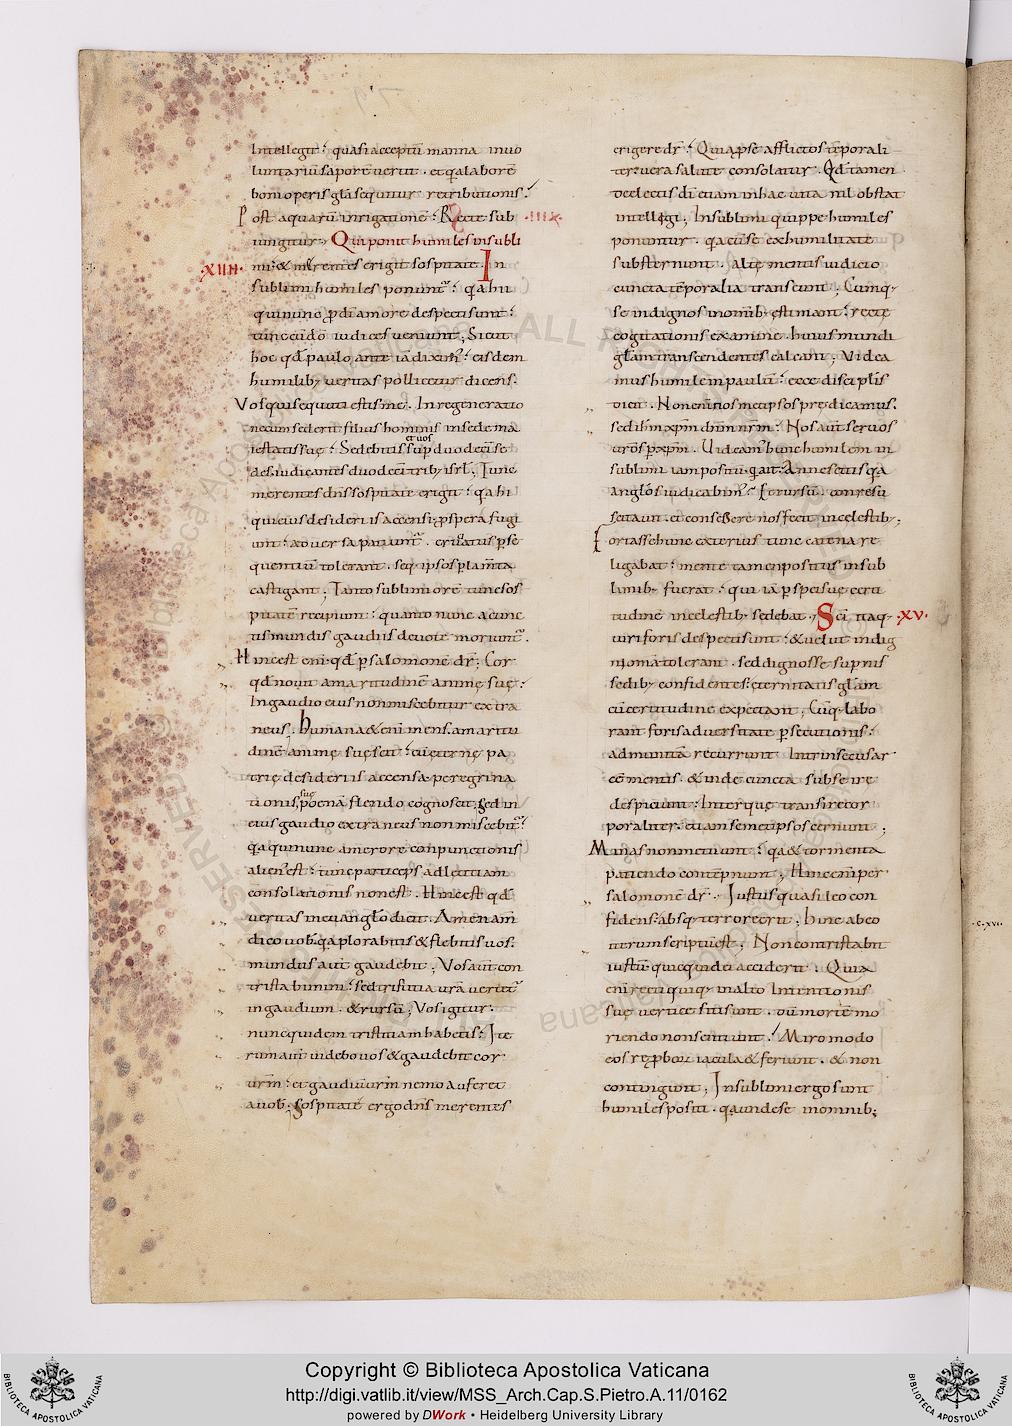 Intellegit: quasi acceptū manna inuo
luntariū saporē uertit. et q̄a laborē
boni operis gl̄a sequitur retributionis;
Post aquarū inrigationē: Recte sub
iungitur, Qui ponit humiles in subli
·XIIII·
mi: & merentes erigit sospitate. In
sublimi humiles ponunt̄: q̄a hii
qui nunc p̄ d̄i amore despecti sunt:
tunc cū dō iudices ueniunt; Sicut
hoc qd̄ paulo ante iā diximꝰ: eisdem
humilib; ueritas pollicetur dicens.
Vos qui secuti estis me. In regeneratio
ne cum sederit filius hominis in sede ma
iestatis suę: Sedebitis et uos sup̄ duodecī se
des. iudicantes duodecī trib; isrl̄; Tunc
merentes dn̄s sospitate erigit: q̄a hi
qui eius desideriis accensi, p̄spera fugi
unt: aduersa patiunt̄. cruciatus p̄se
quentiū tolerant. seq; ipsos p̄ lam̄ta
castigant; Tanto sublimiorē tunc sos
pitatē recipiunt: quanto nunc a cunc
tis mundis gaudiis deuote moriunt̄.
Hinc est eni: qd̄ p̄ salomonē dr̄; Cor
qd̄ nouit amaritudinē animę suę:
In gaudio eius non miscebitur extra
neus. Humana & eni mens. amaritu
dinē animę suę scit: cū ęternę pa
trię desideriis accensa. peregrina
tionis suę poenā flendo cognoscit; Sed in
eius gaudio extraneus non miscebit̄:
q̄a qui nunc a merore conpunctionis
alienꝰ est: tunc particeps ad lętitiam
consolationis non est. Hinc est qd̄
ueritas in euanglo dicit. Amen am̄
dico uob; q̄a plorabitis & flebitis uos.
mundus aut̄ gaudebit; Vos aut̄ con
tristabimini: sed tristitia ur̄a uertit̄
in gaudium. & rursū; Vos igitur.
nunc quidem tristitiam habetis: Ite
rum aut̄ uidebo uos & gaudebit cor
ur̄m: et gaudiū ur̄m nemo auferet
a uob; Sospitatē ergo dn̄s merentes
erigere dr̄: Quia p̄ se afflictos tēporali
ter: uera salute consolatur. Qd̄ tamen
de electis d̄i etiam in hac uita nil obstat
intelligi; In sublimi quippe humiles
ponuntur. q̄a cū se ex humilitate
substernunt. Alte mentis iudicio
cuncta tēporalia transeunt; Cumq;
se indignos in omīb; ęstimant: rectę
cogitationis examine. huius mundi
gl̄am transcendentes calcant; Videa
mus humilem paulū: ecce discipl̄is
dicit. Non enī nos metipsos prędicamus.
sed ihm̄ xp̄m dn̄m nr̄m: Nos aut̄ seruos
uros p̄ xp̄m. Videamꝰ hunc humilem in
sublimi iam positū. q̄ ait: An nescitis q̄a
anglos iudicabimꝰ? Et rursū. conresu
scitauit. et consedere nos fecit in celestib;
Fortasse hunc exterius tunc catena re
ligabat: mente tamen positus in sub
limib; fuerat: qui iā p̄ spei suę certi
tudinē in celestib; sedebat; Sci itaq; ·XV·
uiri foris despecti sunt: & uelut indig
ni omā tolerant. sed dignos se supnis
sedib; confidentes: ęternitatis gl̄am
cū certitudine expectant; Cūq; labo
rant foris aduersitate p̄secutionis:
ad munitā recurrunt intrinsecus ar
cē mentis. & inde cuncta subse ire
despiciunt: Inter quę transire cor
poraliter. etiam semetipsos cernunt;
Minas non metuunt: q̄a & tormenta
patiendo contēpnunt; Hinc enī per
salomonē dr̄. Iustus quasi leo con
fidens. absq; terrore erit; hinc ab eo
iterum scriptū est; Non contristabit
iustū quicquid ei acciderit. Quia
eni recti quiq; in alto Intentionis
suę uertice siti sunt. dū mortē mo
riendo non sentiunt. Miro modo
eos reproborū iacula & feriunt. & non
contingunt; In sublimi ergo sunt
humiles positi. q̄a unde se in omnib;
·c·xvi·
Copyright © Biblioteca Apostolica Vaticana
http://digi.vatlib.it/view/MSS_Arch.Cap.S.Pietro.A.11/0162
powered by DWork • Heidelberg University Library
BIBLIOTECA APOSTOLICA VATICANA
BIBLIOTECA APOSTOLICA VATICANA